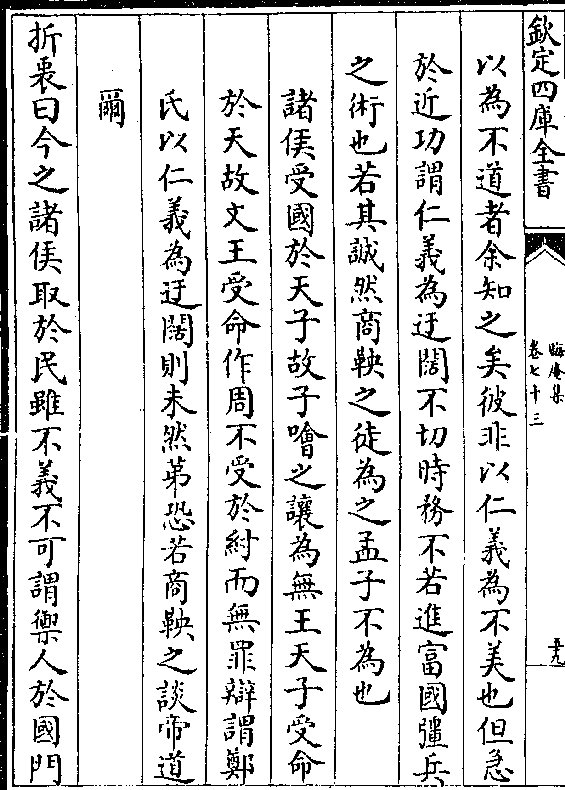 欽定四庫全書
晦菴集
卷七十三
五九
以為不道者余知之矣彼非以仁義為不美也但急
於近功謂仁義為迂闊不切時務不若進富國彊兵
之術也若其誠然商鞅之徒為之孟子不為也
諸侯受國於天子故子噲之讓為無王天子受命
於天故文王受命作周不受於紂而無罪辯謂鄭
氏以仁義為迂闊則未然第恐若商鞅之談帝道
爾
折衷曰今之諸侯取於民雖不義不可謂禦人於國門